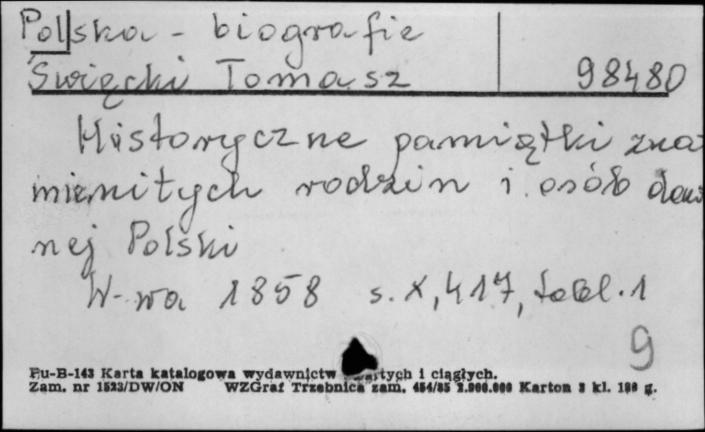 Polska - biografie
Święcki Tomasz 98480
Historyczne pamiątki zna
mienitych rodzin i osób daw
nej Polski
W-wa 1858 s. X, 417, tabl. 1
9
Pu-B-143 Karta katalogowa wydawnictw zwartych i ciągłych.
Zam. nr 1523/DW/ON WZGraf Trzebnica zam. 454/85 2.000.000 Karton 3 kl. 180 g.